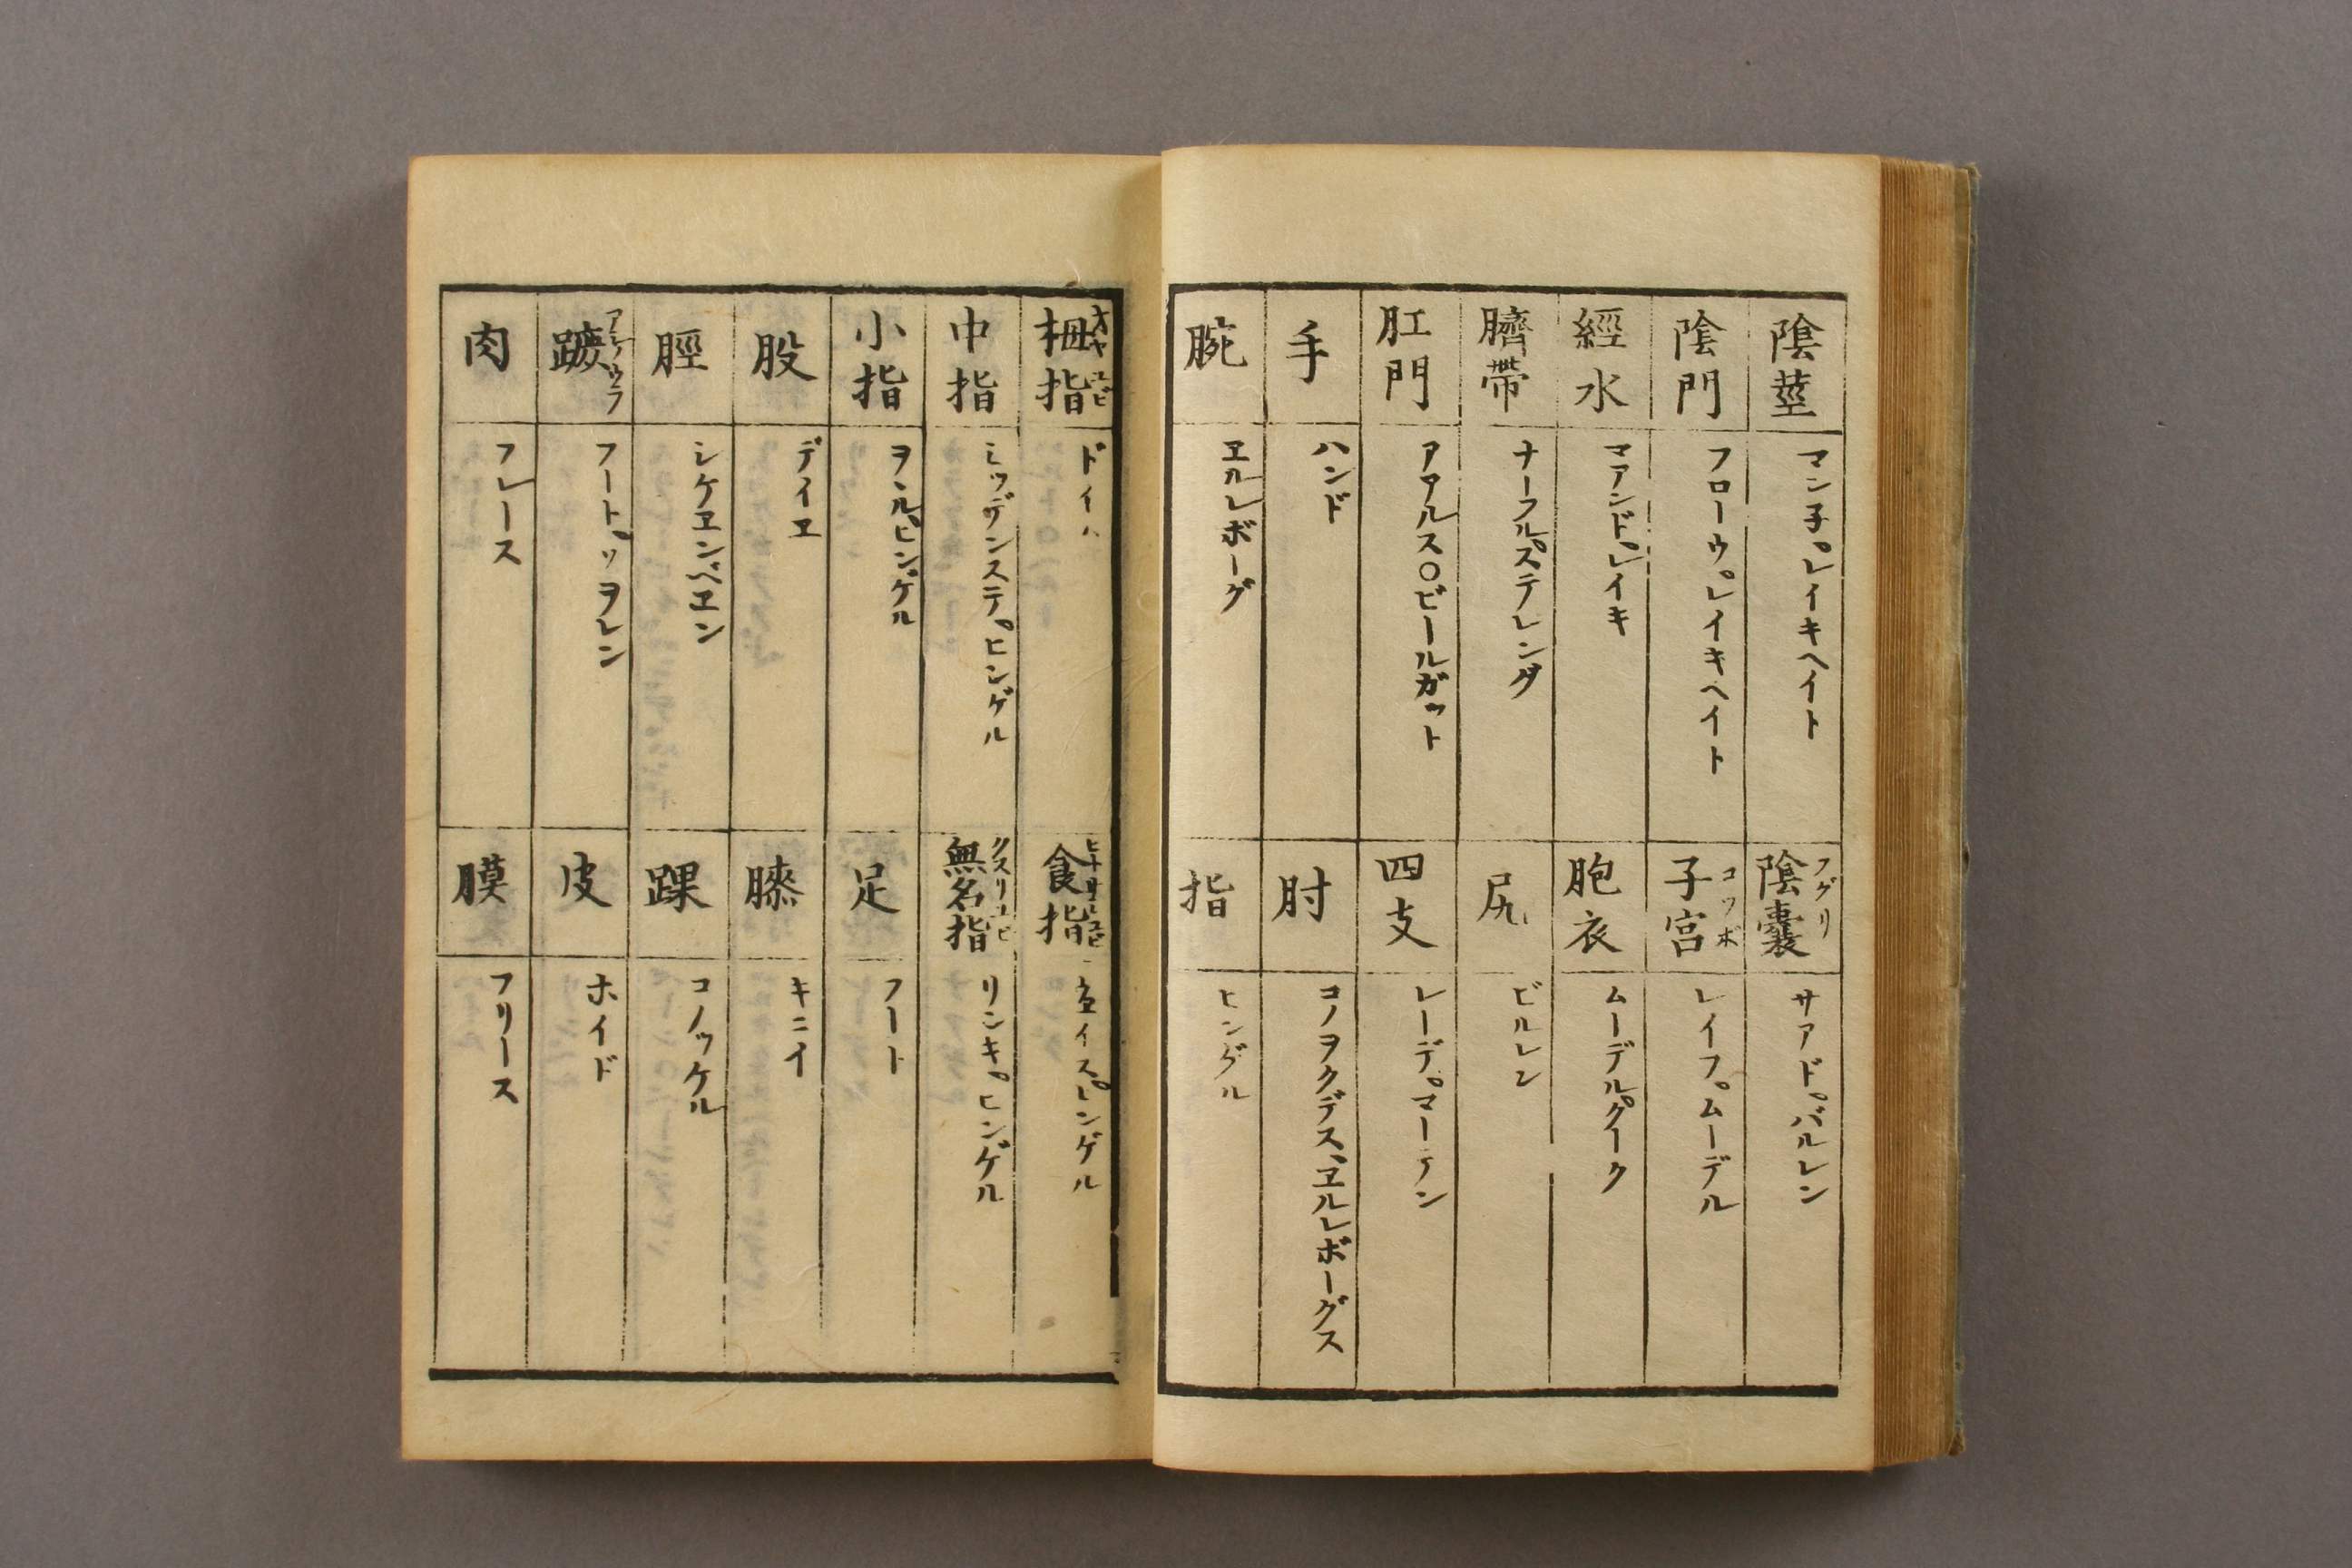 陰莖 マン子。レイキヘイト
陰囊 フグリ サアド。バルレン
陰門 フローウ。レイキヘイト
子宮 コツボ レイフ。ムーデル
經水 マアンド。レイキ
胞衣 ムーデル。クーク
臍帶 ナーフル。ステレンゲ
尻 ビルレン
肛門 アアルス〇ビールガット
四支 レーデ。マーテン
手 ハンド
肘 コノヲクデス、ヱルレボーグス
腕 ヱルレボーグ
指 ヒングル
拇指 オヤユビ ドイ
食指 イス。ヒンゲル
中指 ミッデンステ。ヒンゲル
無名指 クスリユビ リンキ。ヒンゲル
小指 ヲヽル。ヒンゲル
足 フート
股 デイヱ
膝 キニイ
脛 シケヱンベヱン
踝 コノッケル
蹠 アシノウラ フート。ソヲレン
皮 ホイド
肉 フレース
膜 フリース